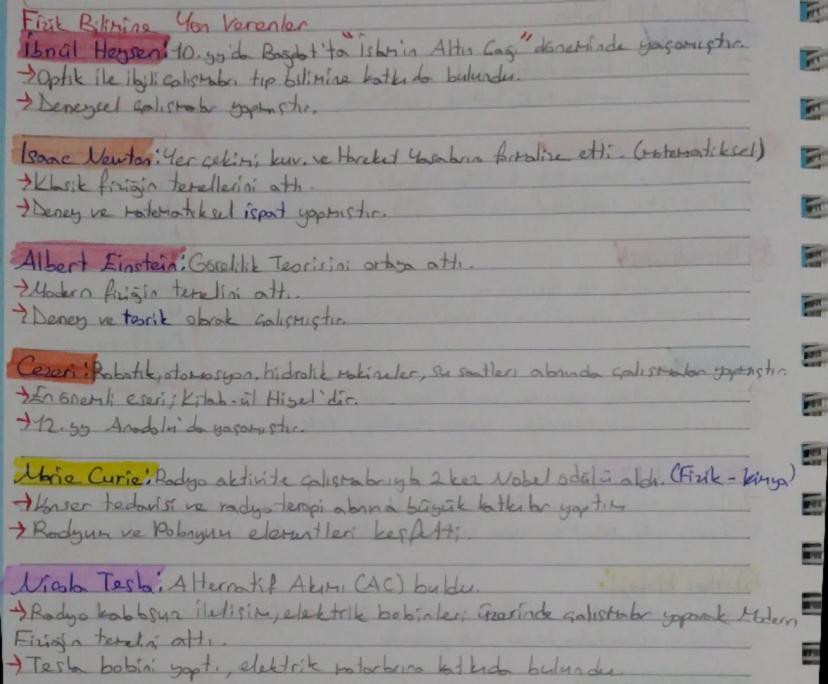 Fizik Bilimine Yön Verenler
İbnül Heysem: 10. yy'da Bağdat'ta "İslamın Altın Çağı" döneminde yaşamıştır.
→Optik ile ilgili çalışmaları tıp bilimine katkıda bulundu.
→Deneysel çalışmalar yapmıştır.
Isaac Newton: Yer çekimi kuv. ve Hareket Yasalarını formalize etti. (matematiksel)
→Klasik fiziğin temellerini attı.
→Deney ve matematiksel ispat yapmıştır.
Albert Einstein: Görelilik Teorisini ortaya attı.
→Modern fiziğin temelini attı.
→Deney ve teorik olarak çalışmıştır.
Cezeri: Robotik, otomasyon, hidrolik makineler, su saatleri alanında çalışmaları yapmıştır.
→En önemli eseri; Kitab-ül Hiyel'dir.
→12. yy Anadolu'da yaşamıştır.
Marie Curie: Radyo aktivite çalışmalarıyla 2 kez Nobel ödülü aldı. (Fizik - kimya)
→Kanser tedavisi ve radyoterapi alanına büyük katkılar yaptı
→Radyum ve Polonyum elementleri keşfetti.
Nicola Tesla: Alternatif Akımı (AC) buldu.
→Radyo kablosuz iletişim, elektrik bobinleri üzerinde çalışmalar yaparak Modern
Fiziğin temelini attı.
→Tesla bobini yaptı, elektrik motorlarına katkıda bulundu.